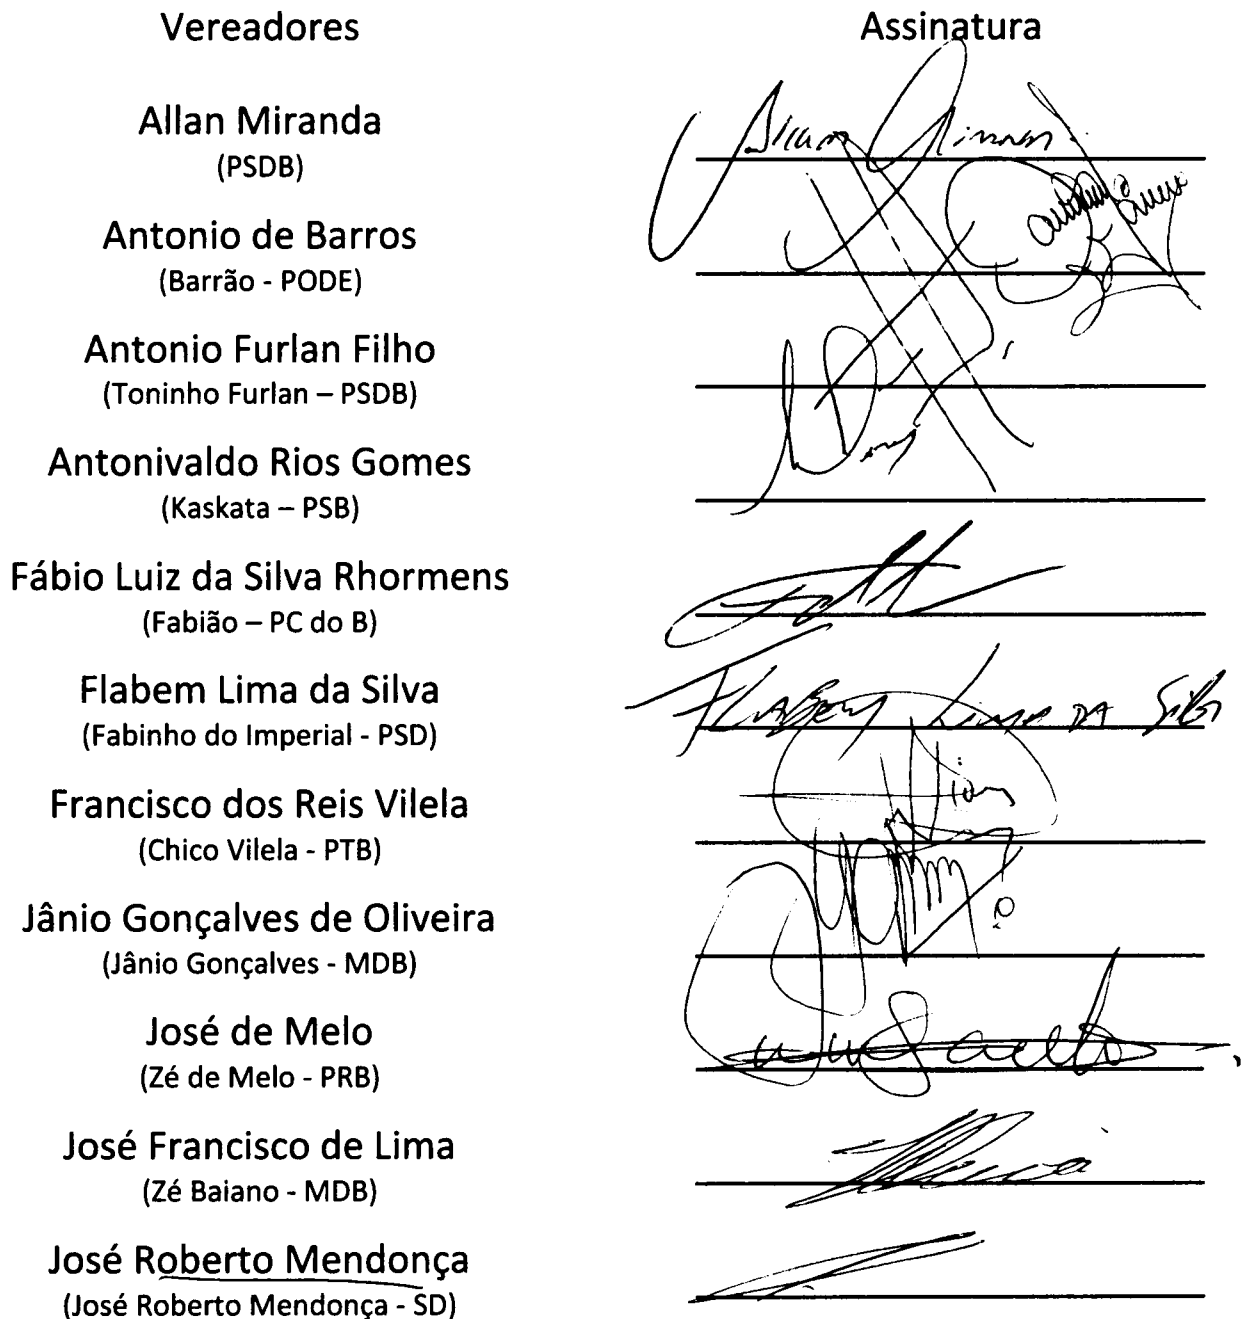 Vereadores Assinatura
Allan Miranda
(PSDB)
Antonio de Barros
(Barrão - PODE)
Antonio Furlan Filho
(Toninho Furlan – PSDB)
Antonivaldo Rios Gomes
(Kaskata – PSB)
Fábio Luiz da Silva Rhormens
(Fabião – PC do B)
Flabem Lima da Silva
Flabem Lima DA Silva
(Fabinho do Imperial - PSD)
Francisco dos Reis Vilela
(Chico Vilela - PTB)
Jânio Gonçalves de Oliveira
(Jânio Gonçalves - MDB)
José de Melo
(Zé de Melo - PRB)
José Francisco de Lima
(Zé Baiano - MDB)
José Roberto Mendonça
(José Roberto Mendonça - SD)